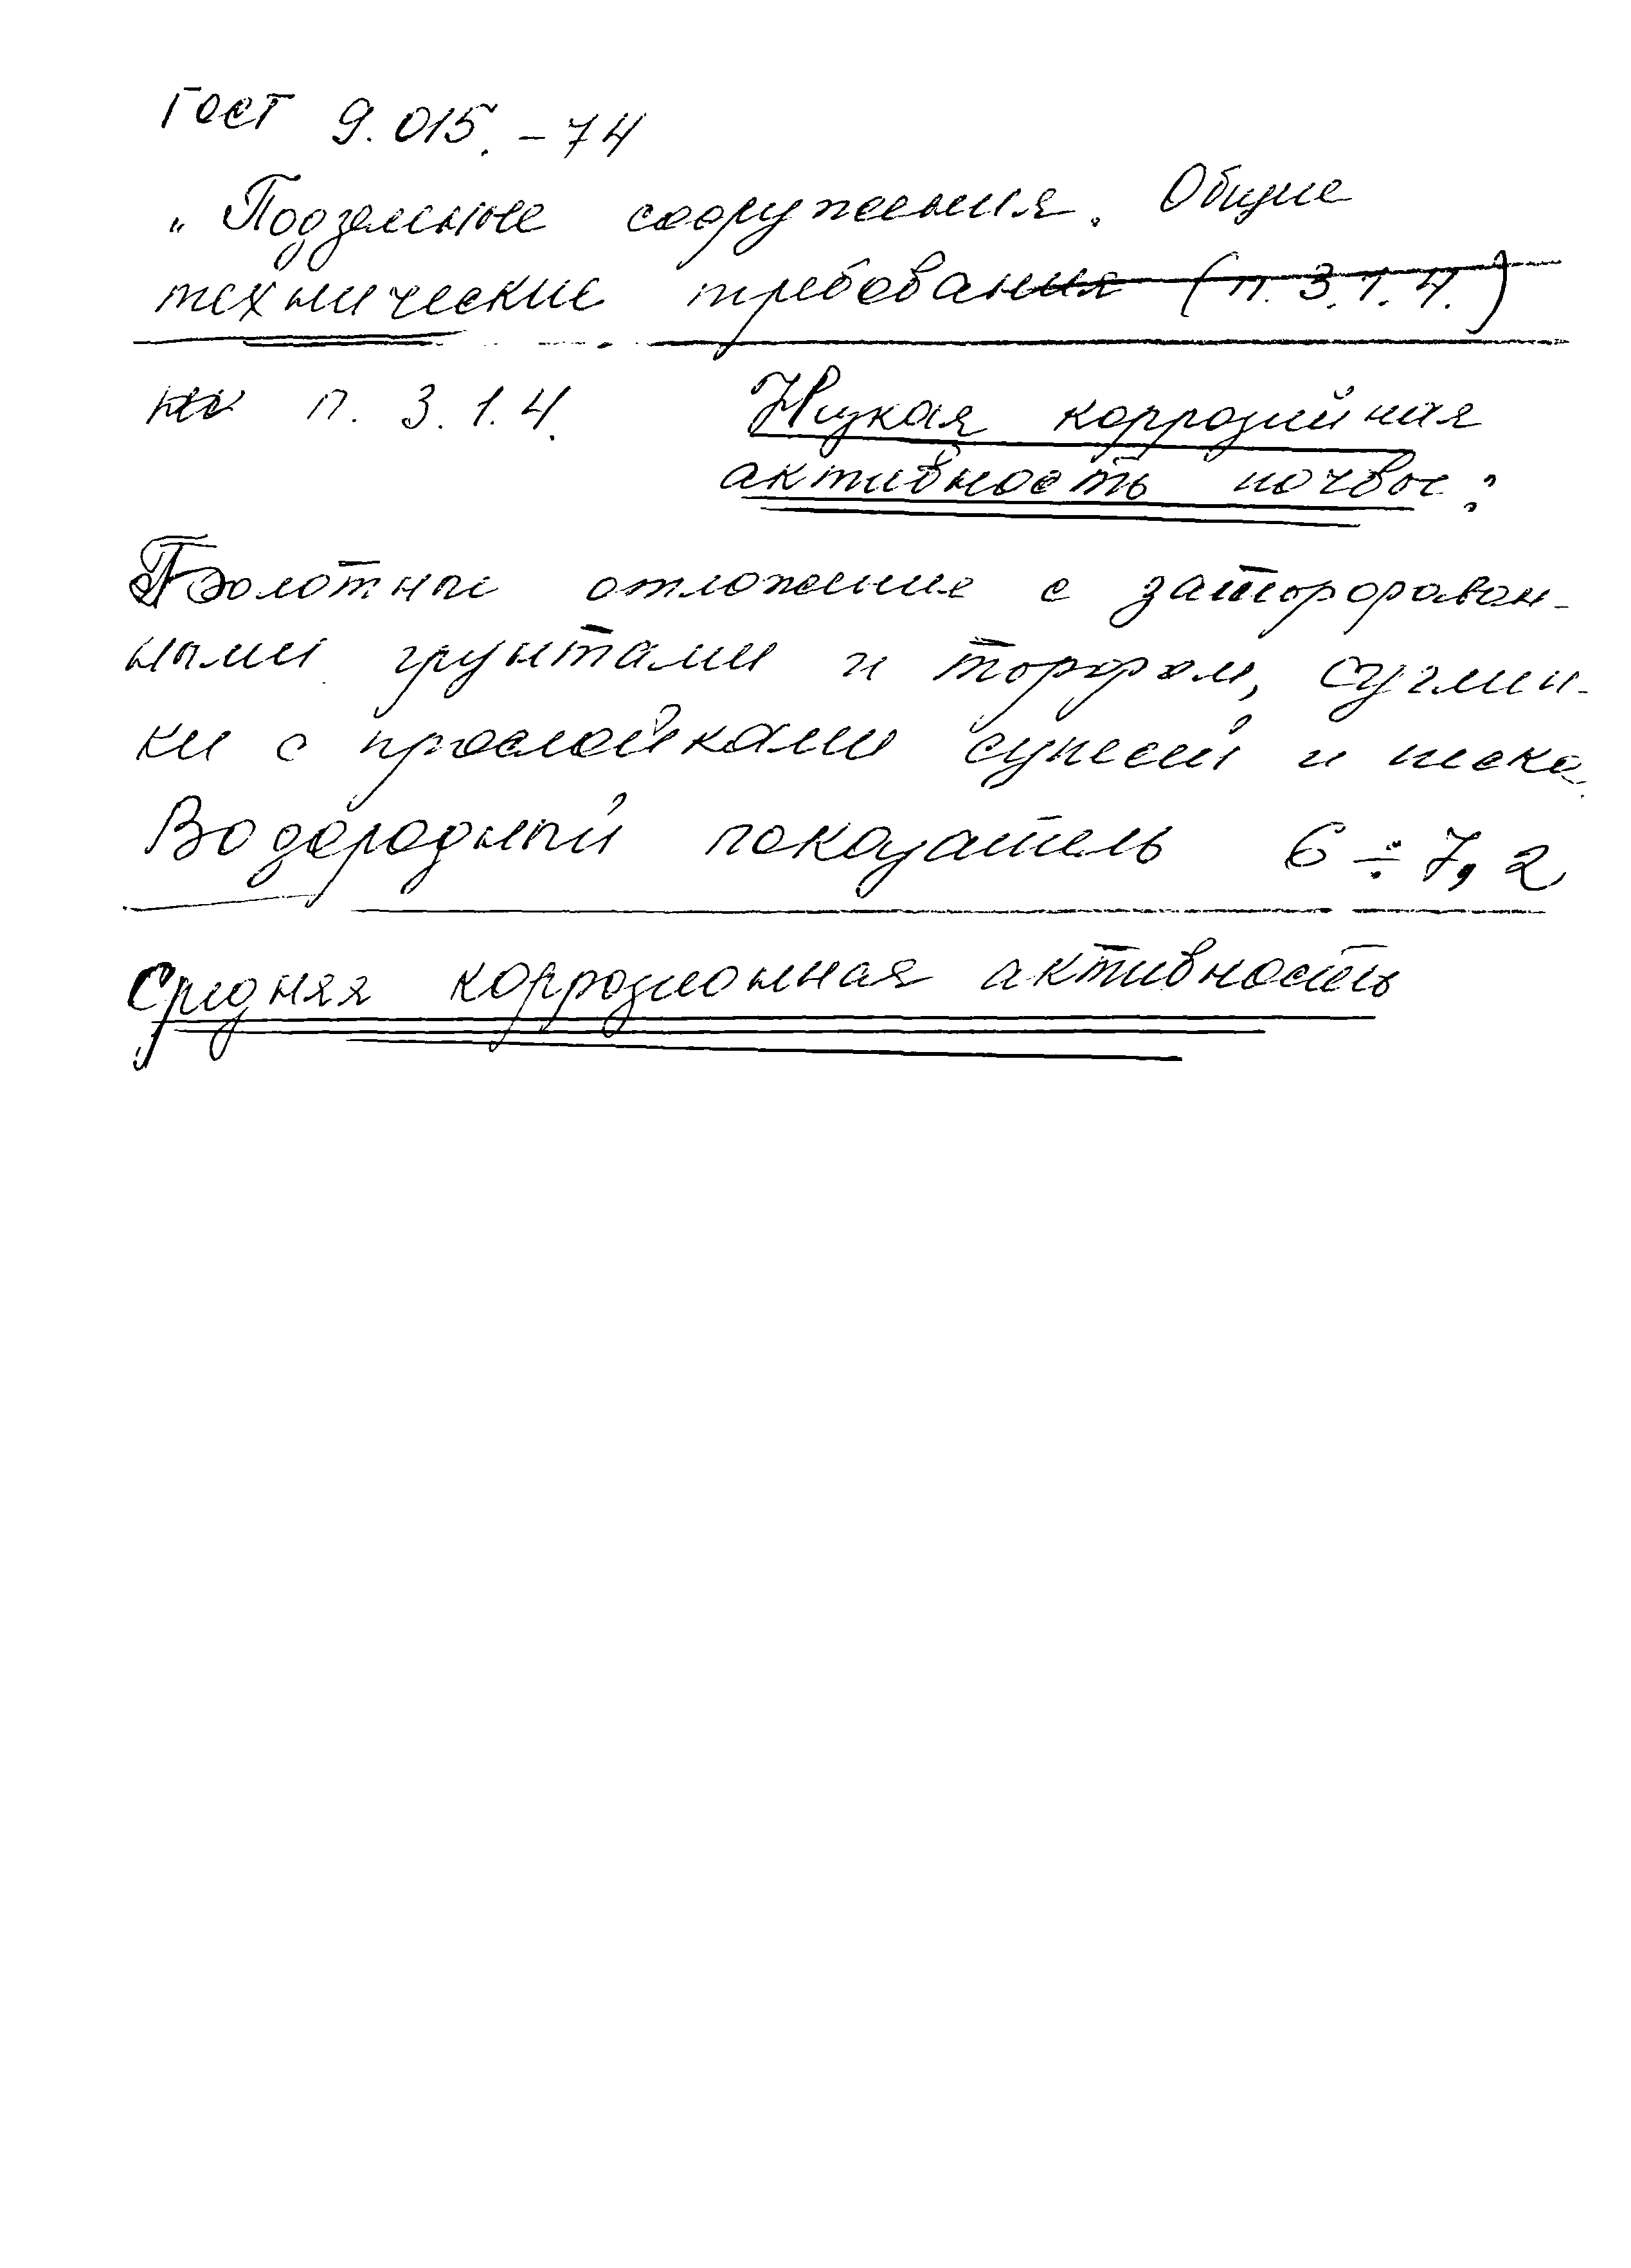 ГОСТ 9.015.-74
„Подземные сооружения. Общие
технические требования (п. 3.1.4.)
п. 3.1.4. Низкая коррозийная
активность почвы:
Болотные отложение с заторфован-
ными грунтами и торфом, суглин-
ки с прослойками супесей и песка.
Водородный показатель 6÷7,2
Средняя коррозионная активность